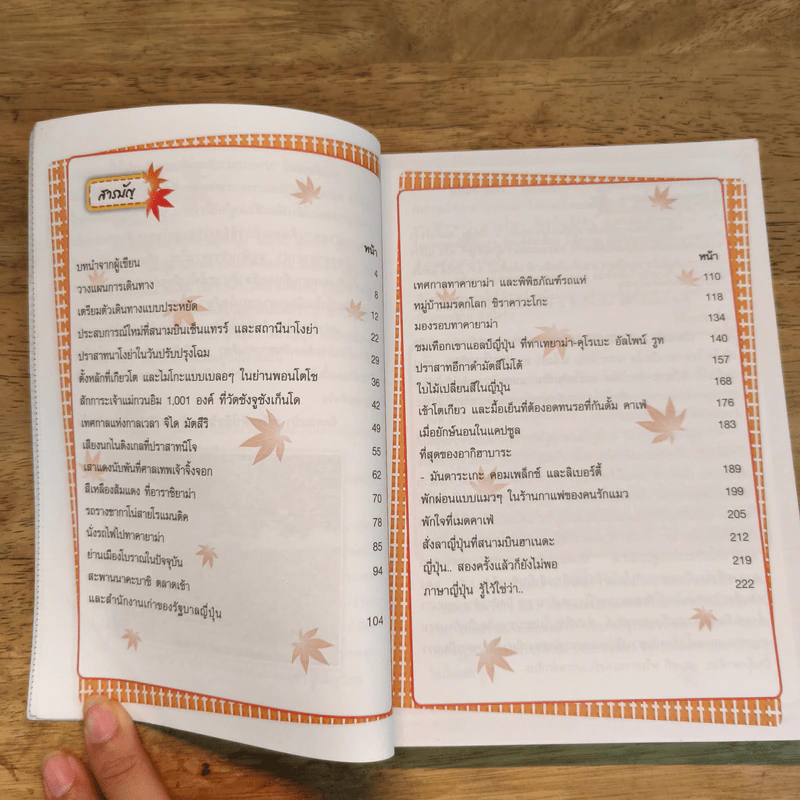 สารบัญ
หน้า
บทนำจากผู้เขียน 4
วางแผนการเดินทาง 8
เตรียมตัวเดินทางแบบประหยัด 12
ประสบการณ์ใหม่ที่สนามบินเซ็นแทรร์ และสถานีนาโงย่า 22
ปราสาทนาโงย่าในวันปรับปรุงโฉม 29
ตั้งหลักที่เกียวโต และไมโกะแบบเบลอๆ ในย่านพอนโตโช 36
สักการะเจ้าแม่กวนอิม 1,001 องค์ ที่วัดซังจูซังเก็นโด 42
เทศกาลแห่งกาลเวลา จิได มัตสึริ 49
เสียงนกไนติงเกลที่ปราสาทนิโจ 55
เสาแดงนับพันที่ศาลเทพเจ้าจิ้งจอก 62
สีเหลืองส้มแดง ที่อาราชิยาม่า 70
รถรางซากาโน่สายโรแมนติค 78
นั่งรถไฟไปทาคายาม่า 85
ย่านเมืองโบราณในปัจจุบัน 94
สะพานนาคะบาชิ ตลาดเช้า
และสำนักงานเก่าของรัฐบาลญี่ปุ่น 104
หน้า
เทศกาลทาคายาม่า และพิพิธภัณฑ์รถแห่ 110
หมู่บ้านมรดกโลก ชิราคาวะโกะ 118
มองรอบทาคายาม่า 134
ชมเทือกเขาแอลป์ญี่ปุ่น ที่ทาเทยาม่า-คุโรเบะ อัลไพน์ รูท 140
ปราสาทอีกาดำมัตสึโมโต้ 157
ใบไม้เปลี่ยนสีในญี่ปุ่น 168
เข้าโตเกียว และมื้อเย็นที่ต้องอดทนรอที่กันดั้ม คาเฟ่ 176
เมื่อยักษ์นอนในแคปซูล 183
ที่สุดของอากิฮาบาระ
- มันดาระเกะ คอมเพล็กซ์ และลิเบอร์ตี้ 189
พักผ่อนแบบแมวๆ ในร้านกาแฟของคนรักแมว 199
พักใจที่เมดคาเฟ่ 205
สั่งลาญี่ปุ่นที่สนามบินฮาเนดะ 212
ญี่ปุ่น.. สองครั้งแล้วก็ยังไม่พอ 219
ภาษาญี่ปุ่น รู้ไว้ใช่ว่า.. 222